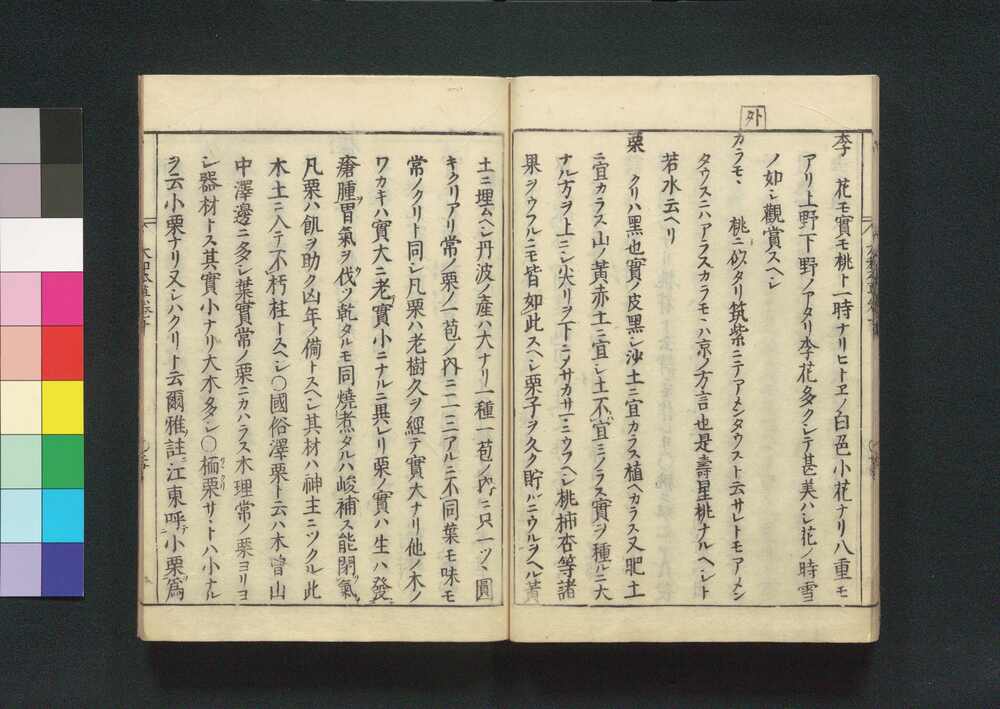 李 花モ實モ桃ト一時ナリヒトヱノ白色小花ナリ八重モ
アリ上野下野ノアタリ李花多クシテ甚美ハシ花ノ時雪
ノ如シ觀賞スヘシ
外
カラモヽ 桃ニ似タリ筑紫ニテアメンタウスト云サレトモアメン
タウスニハアラスカラモヽハ京ノ方言也是壽星桃ナルヘシト
若水云ヘリ
栗 クリハ黑也實ノ皮黑シ沙土ニ宜カラス植ヘカラス又肥土
ニ宜カラス山ノ黃赤土ニ宜シ土不宜ミノラス實ヲ種ルニ大
ナル方ヲ上ニシ尖リヲ下ニメサカサマニウフヘシ桃柿杏等諸
果ヲウフルニモ皆如此スヘシ栗子ヲ久ク貯ルニウルヲヘル黃
土ニ埋ムヘシ丹波ノ產ハ大ナリ一種一苞ノ內ニ只一ツヽ圓
キクリアリ常ノ栗ノ一苞ノ內ニ二三アルニ不同葉モ味モ
常ノクリト同シ凡栗ハ老樹久ヲ經テ實大ナリ他ノ木ノ
ワカキハ實大ニ老實小ニナルニ異レリ栗ノ實ハ生ハ發
瘡腫胃氣ヲ伐ツ乾タルモ同燒煮タルハ峻補ス能閉氣
凡栗ハ飢ヲ助ク凶年ノ備トスヘシ其材ハ神主ニツクル此
木土ニ入テ不朽柱トスヘシ〇國俗澤栗ト云ハ木曽山
中澤邊ニ多シ葉實常ノ栗ニカハラス木理常ノ栗ヨリヨ
シ器材トス其實小ナリ大木多シ〇栭栗サヽトハ小ナル
ヲ云小栗ナリ又シハクリト云爾雅註ニ江東呼小栗爲